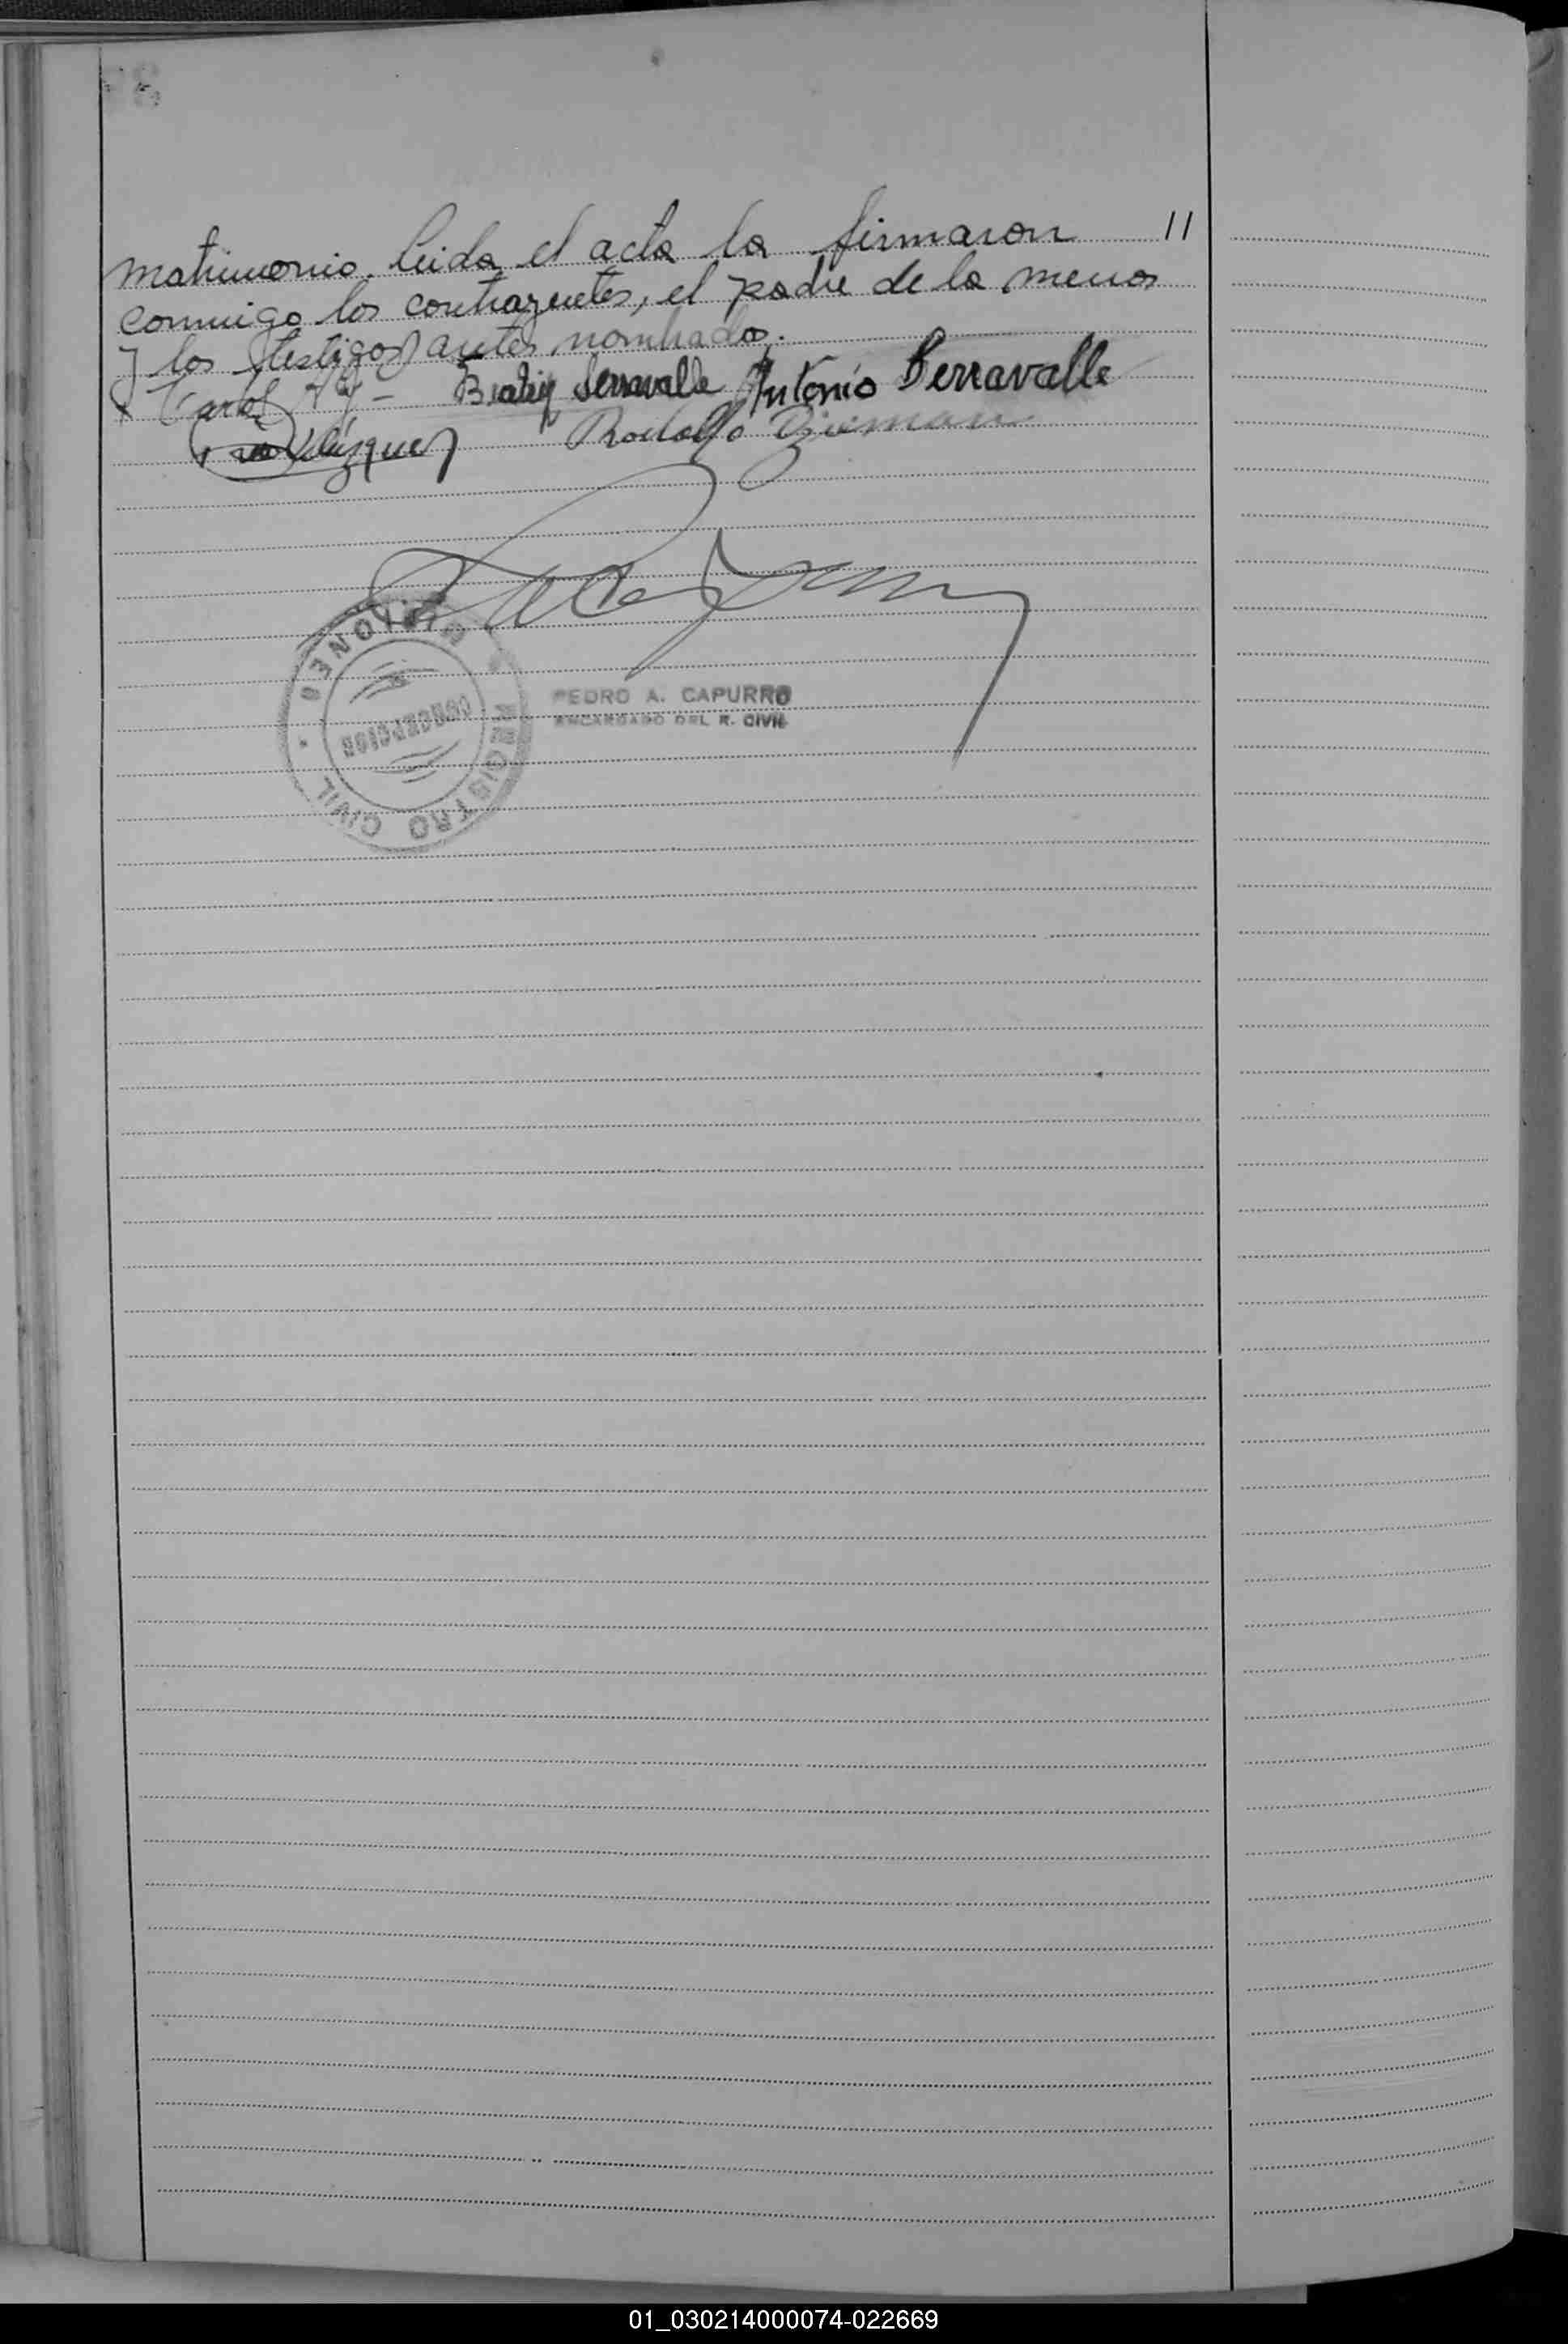 matrimonio. Leida el acta la firmaron 11
conmigo los contrayentes, el padre de la menor
y los testigos antes nombrados.
Carlos Beatriz Serravalle Antonio Serravalle
Velázquez Rodolfo
MISIONES
CONCEPCION
REGISTRO CIVIL
PEDRO A. CAPURRO
ENCARGADO DEL R. CIVIL
01_030214000074-022669